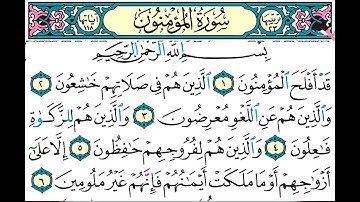 سُورَةُ المُؤْمِنُونَ
بِسْمِ اللَّهِ الرَّحْمَٰنِ الرَّحِيمِ
قَدْ أَفْلَحَ الْمُؤْمِنُونَ ١ الَّذِينَ هُمْ فِي صَلَاتِهِمْ خَاشِعُونَ ٢
وَالَّذِينَ هُمْ عَنِ اللَّغْوِ مُعْرِضُونَ ٣ وَالَّذِينَ هُمْ لِلزَّكَوٰةِ
فَاعِلُونَ ٤ وَالَّذِينَ هُمْ لِفُرُوجِهِمْ حَافِظُونَ ٥ إِلَّا عَلَىٰٓ
أَزْوَاجِهِمْ أَوْ مَا مَلَكَتْ أَيْمَانُهُمْ فَإِنَّهُمْ غَيْرُ مَلُومِينَ ٦